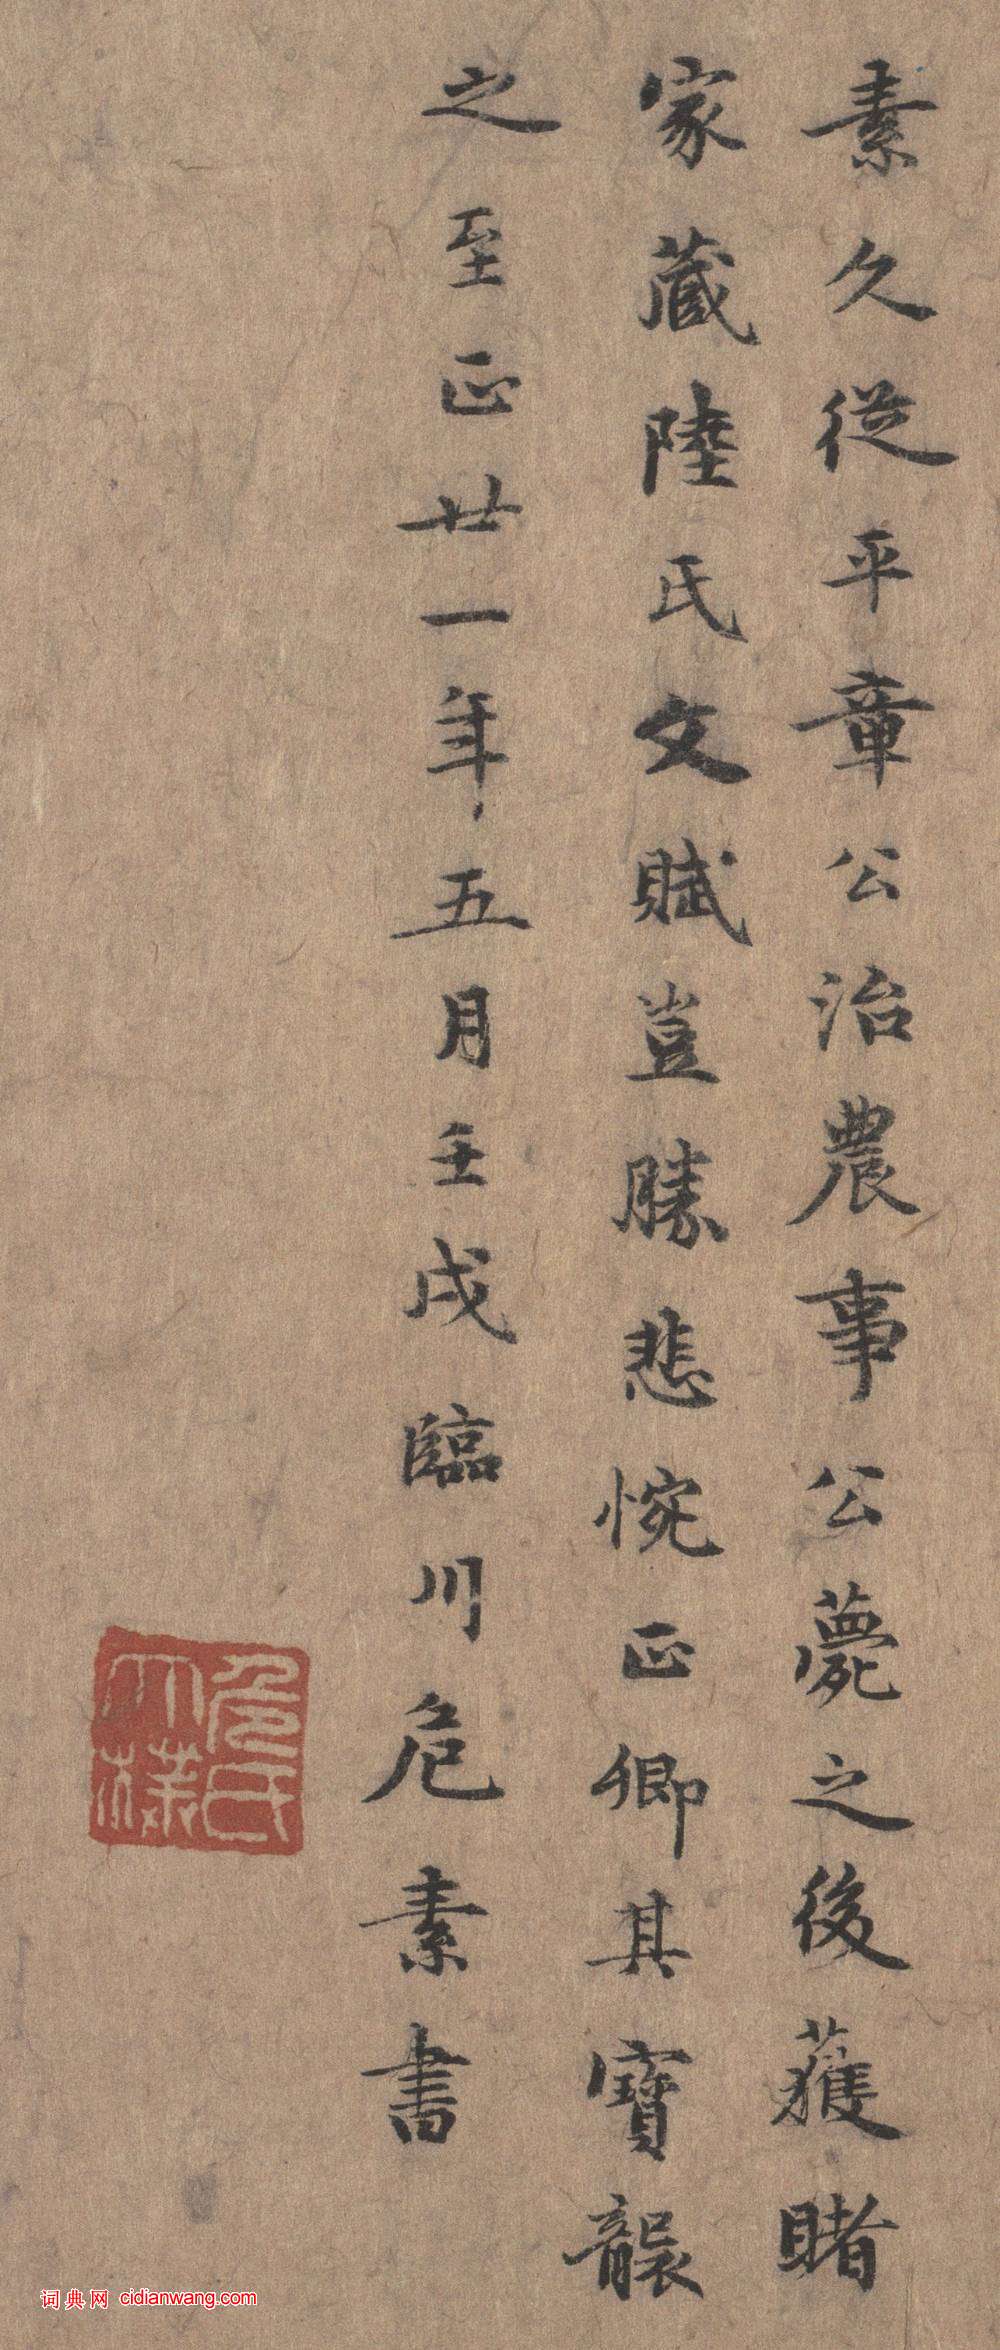 素久從平章公治農事公薨之後獲睹
家藏陸氏文賦豈勝悲惋正卿其寶襲
之至正廿一年五月壬戌臨川危素書
危氏太樸
词典网 cidianwang.com